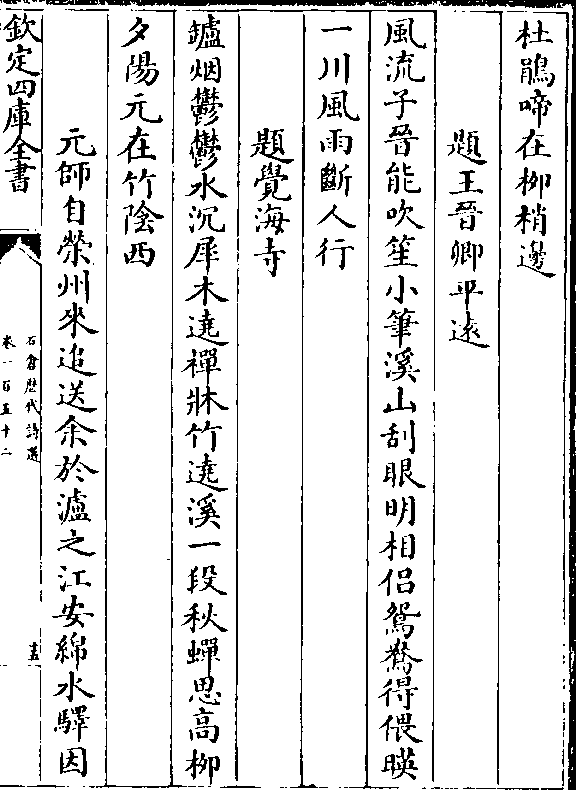 杜鵑啼在柳梢邊
題王晉卿平逺
風流子晉能吹笙小筆溪山刮眼明相侣鴛鴦得偎暎
一川風雨斷人行
題覺海寺
鑪烟鬱鬱水沉犀木遶禪牀竹遶溪一段秋蟬思高柳
夕陽元在竹陰西
元師自榮州來追送余於瀘之江安綿水驛因
欽定四庫全書
石倉歷代詩選
卷一百五十二